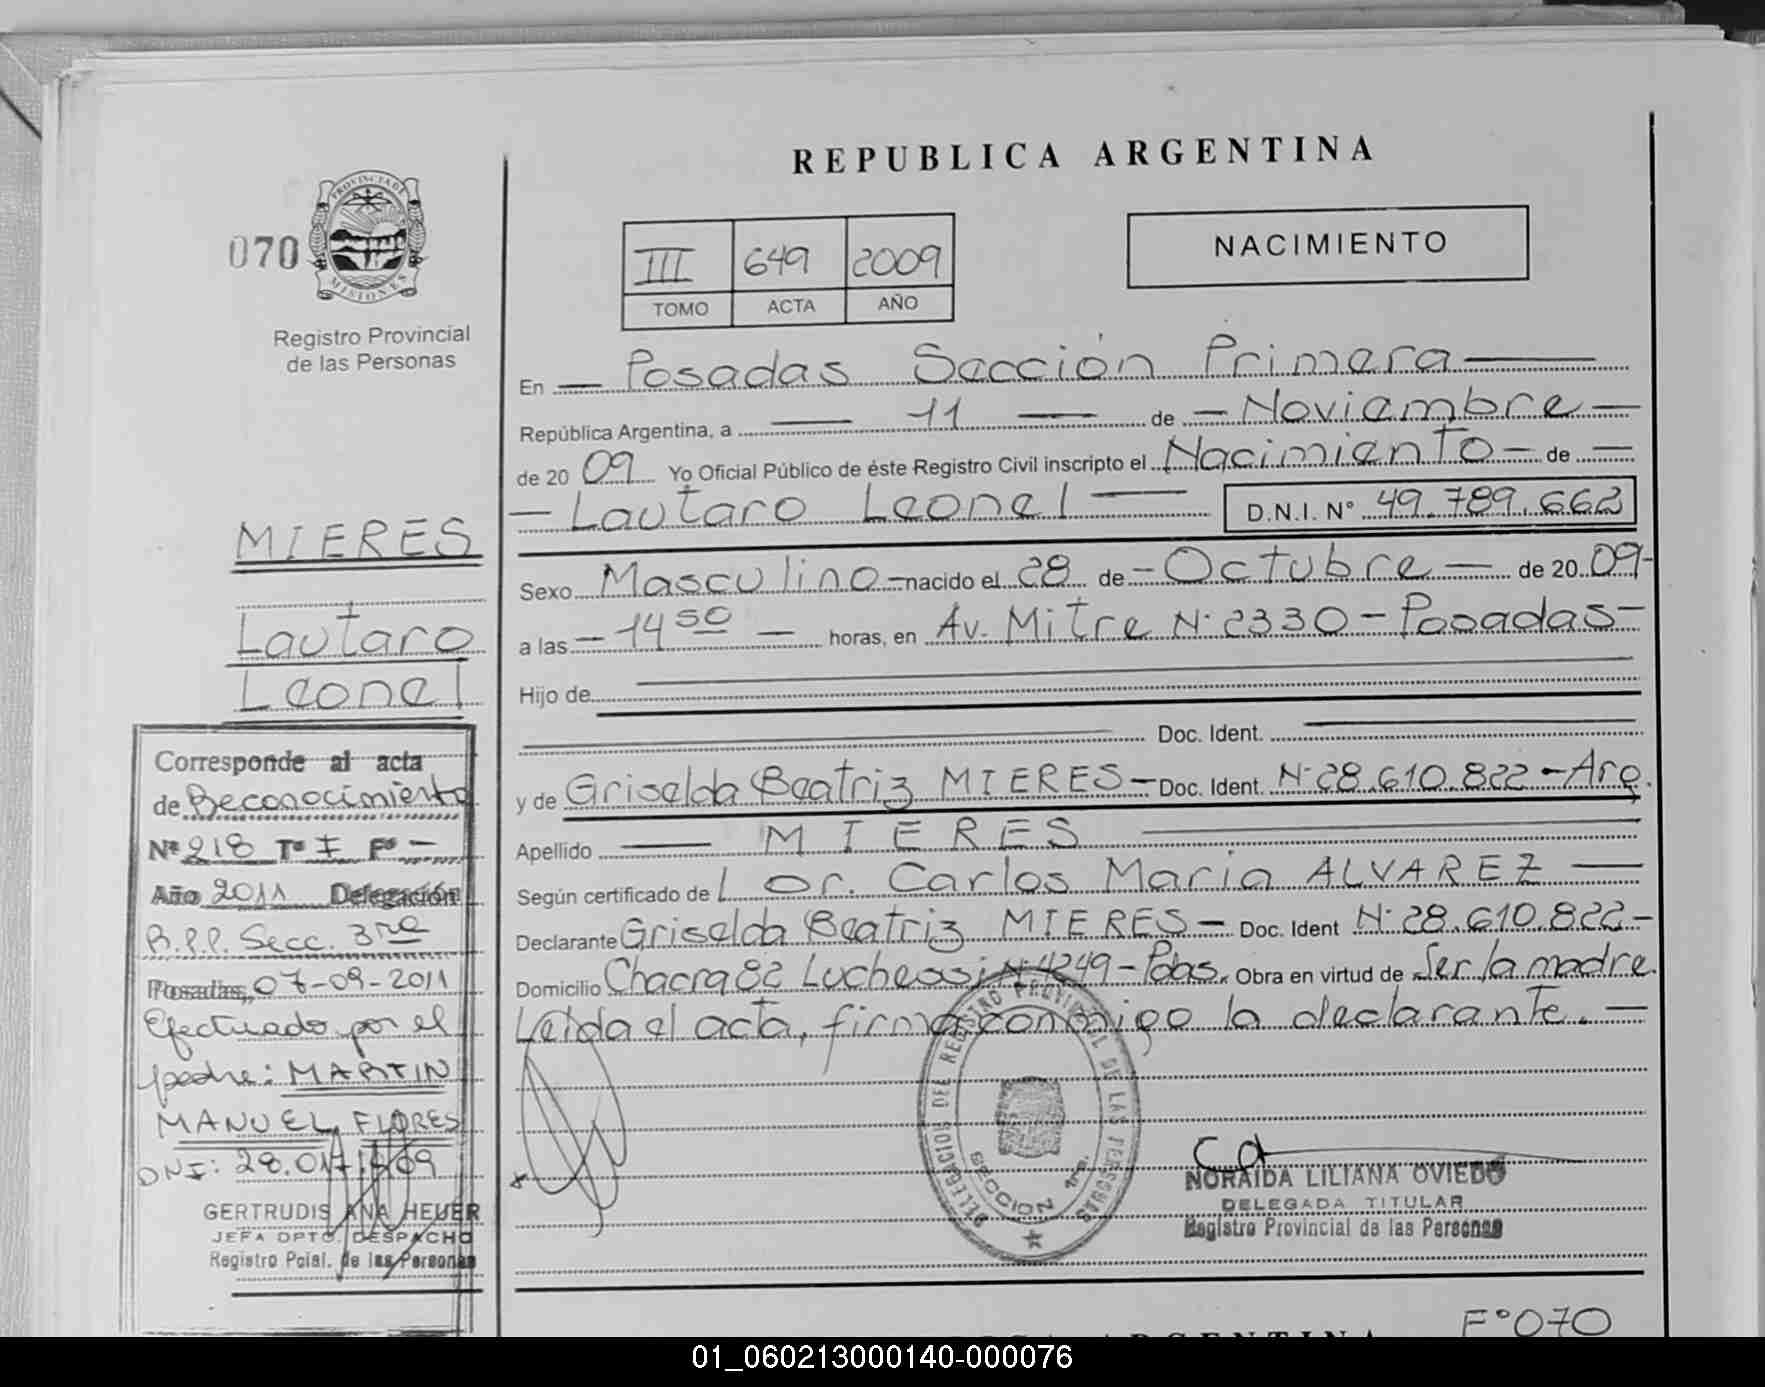 REPUBLICA ARGENTINA
070
PROVINCIA DE
MISIONES
Registro Provincial
de las Personas
III 649 2009
TOMO ACTA AÑO
NACIMIENTO
En Posadas Sección Primera
República Argentina, a 11 de Noviembre
de 20 09 Yo Oficial Público de éste Registro Civil inscripto el Nacimiento de
Lautaro Leonel D.N.I. N° 49.789.662
Sexo Masculino nacido el 28 de Octubre de 20 09
a las 14 50 horas, en Av. Mitre N° 2330 - Posadas
Hijo de
Doc. Ident.
y de Griselda Beatriz MIERES Doc. Ident. N° 28.610.822 - Arg.
Apellido MIERES
Según certificado de Carlos Maria ALVAREZ
Declarante Griselda Beatriz MIERES Doc. Ident N° 28.610.822
Domicilio Chacra 82 N° 4249 - Pdas. Obra en virtud de Ser la madre
Leida el acta, firma conmigo la declarante.
MIERES
Lautaro
Leonel
Corresponde al acta
de Reconocimiento
Nº 218 Tº I Fº -
Año 2011 Delegación
R.P.P. Secc. 3ra
Posadas, 07-09-2011
Efectuado por el
padre: MARTIN
MANUEL FLORES
DNI: 28.017.
GERTRUDIS ANA HEUER
JEFA DPTO. DESPACHO
Registro Pcial. de las Personas
DELEGACION DEL REGISTRO PROVINCIAL DE LAS PERSONAS
SECCION 1ra.
NORAIDA LILIANA OVIEDO
DELEGADA TITULAR
Registro Provincial de las Personas
F° 070
ARGENTINA
01_060213000140-000076